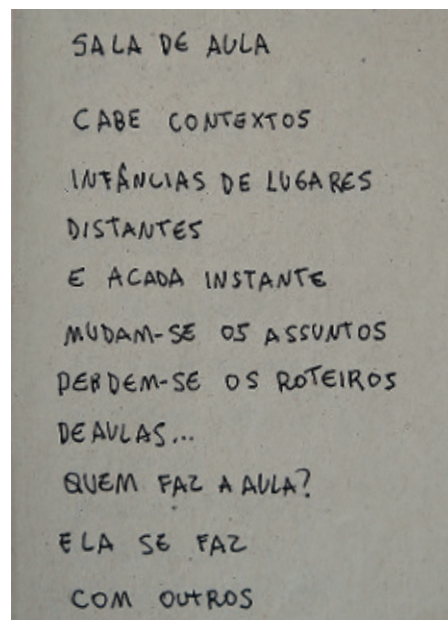 SALA DE AULA
CABE CONTEXTOS
INFÂNCIAS DE LUGARES
DISTANTES
E ACADA INSTANTE
MUDAM-SE OS ASSUNTOS
PERDEM-SE OS ROTEIROS
DE AULAS...
QUEM FAZ A AULA?
ELA SE FAZ
COM OUTROS